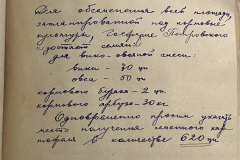 Для обсеменения всей площади,
запланированной под кормовые
культуры, Госфонде Петровского
недостает семян:
для вико-овсяной смеси:
вики - 30 цн
овса - 50 цн
кормового бурака - 2 цн.
кормового арбуза - 30 кг.
Одновременно просим указать
место получения картофеля в количестве 620 цн